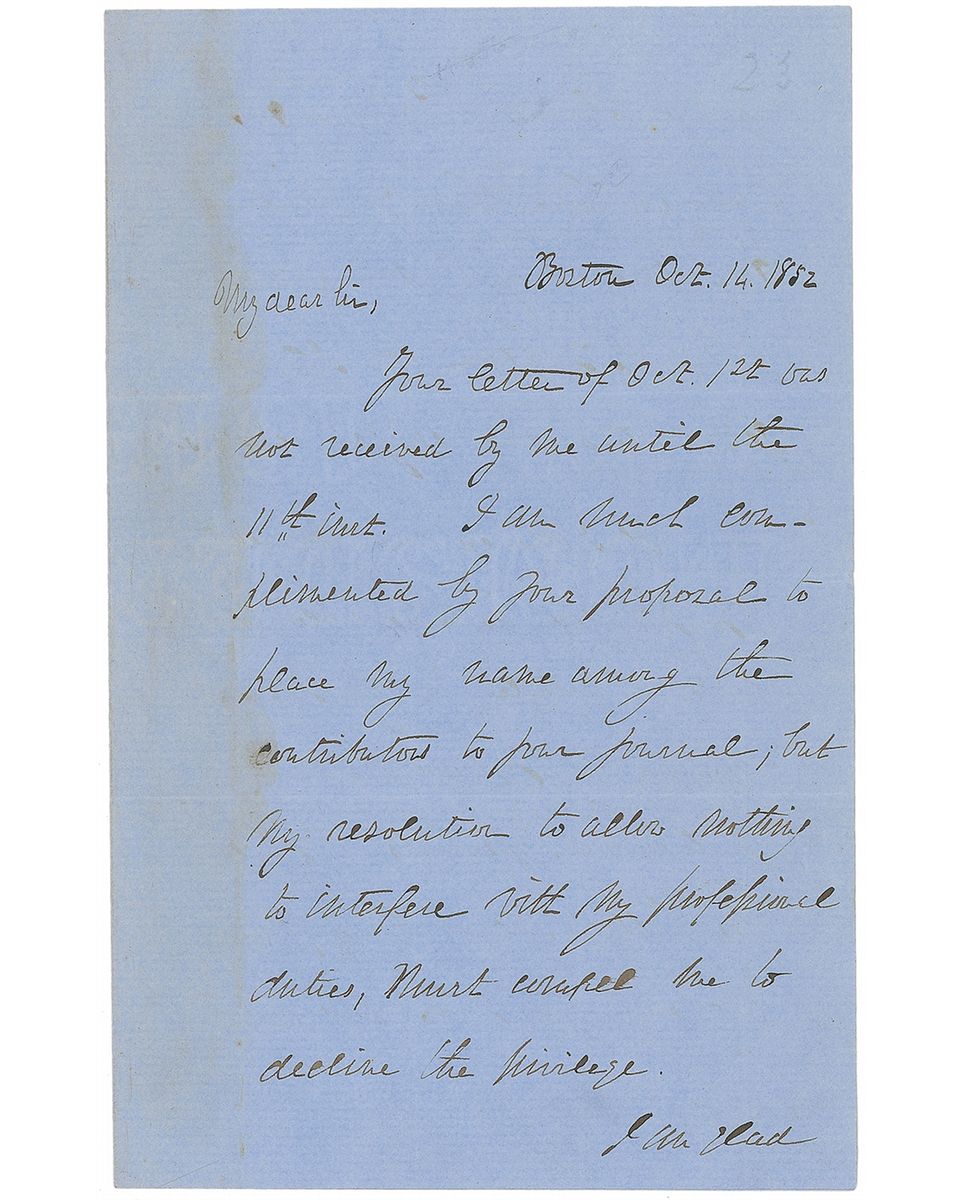 23
Boston Oct. 14. 1852
My dear Sir,
Your letter of Oct. 1st was
not received by me until the
11th inst. I am much com-
plimented by your proposal to
place my name among the
contributors to your journal; but
my resolution to allow nothing
to interfere with my professional
duties, must compel me to
decline the privilege.
I am glad